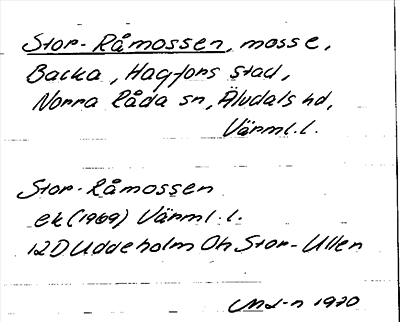 Stor-Råmossen, mosse,
Backa, Hagfors stad,
Norra Råda sn, Älvdals hd,
Värml.l.
Stor-Råmossen
ek (1969) Värml.l.
12D Uddeholm Oh Stor-Ullen
1970